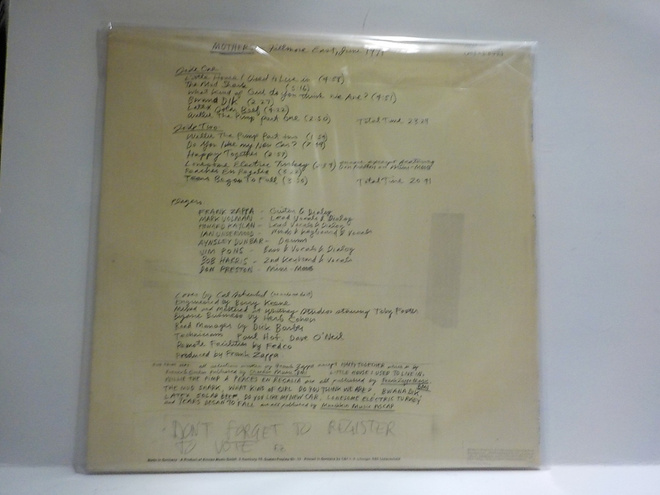 MOTHERS Fillmore East, June 1971
Side One
Little House I Used to Live in (4:58)
The Mud Shark (5:16)
What Kind of Girl do you think we Are? (4:51)
Bwana Dik (2:27)
Latex Solar Beef (4:22)
Willie The Pimp part one (2:50) Total Time
Side Two
Willie The Pimp Part two (1:54)
Do You Like my New Car?
Happy Together (2:57)
Lonesome Electric Turkey
Peaches En Regalia
Tears Began To Fall Total Time
FRANK ZAPPA - Guitar & Dialog
MARK VOLMAN - Lead Vocals & Dialog
HOWARD KAYLAN - Lead Vocals & Dialog
IAN UNDERWOOD - Keyboard & Vocals
AYNSLEY DUNBAR - Drums
JIM PONS - Bass & Vocals & Dialog
BOB HARRIS - 2nd Keyboard & Vocals
DON PRESTON - Mini-Moog
Cover by Cal Schenkel
Engineered by Barry Keene
Mixed and Mastered at Whitney Studios starring Toby Foster
Bizarre Business by Herb Cohen
Road Manager by Dick Barber
Technicians Paul Hof, Dave O'Neil
Remote Facilities by Fedco
Produced by Frank Zappa
all selections written by Frank Zappa except HAPPY TOGETHER
LITTLE HOUSE I USED TO LIVE IN,
WILLIE THE PIMP & PEACHES EN REGALIA are all published by
THE MUD SHARK, WHAT KIND OF GIRL DO YOU THINK WE ARE? BWANA DIK
LATEX SOLAR BEEF, DO YOU LIKE MY NEW CAR, LONESOME ELECTRIC TURKEY
and TEARS BEGAN TO FALL are all published by
DON'T FORGET TO REGISTER
TO VOTE